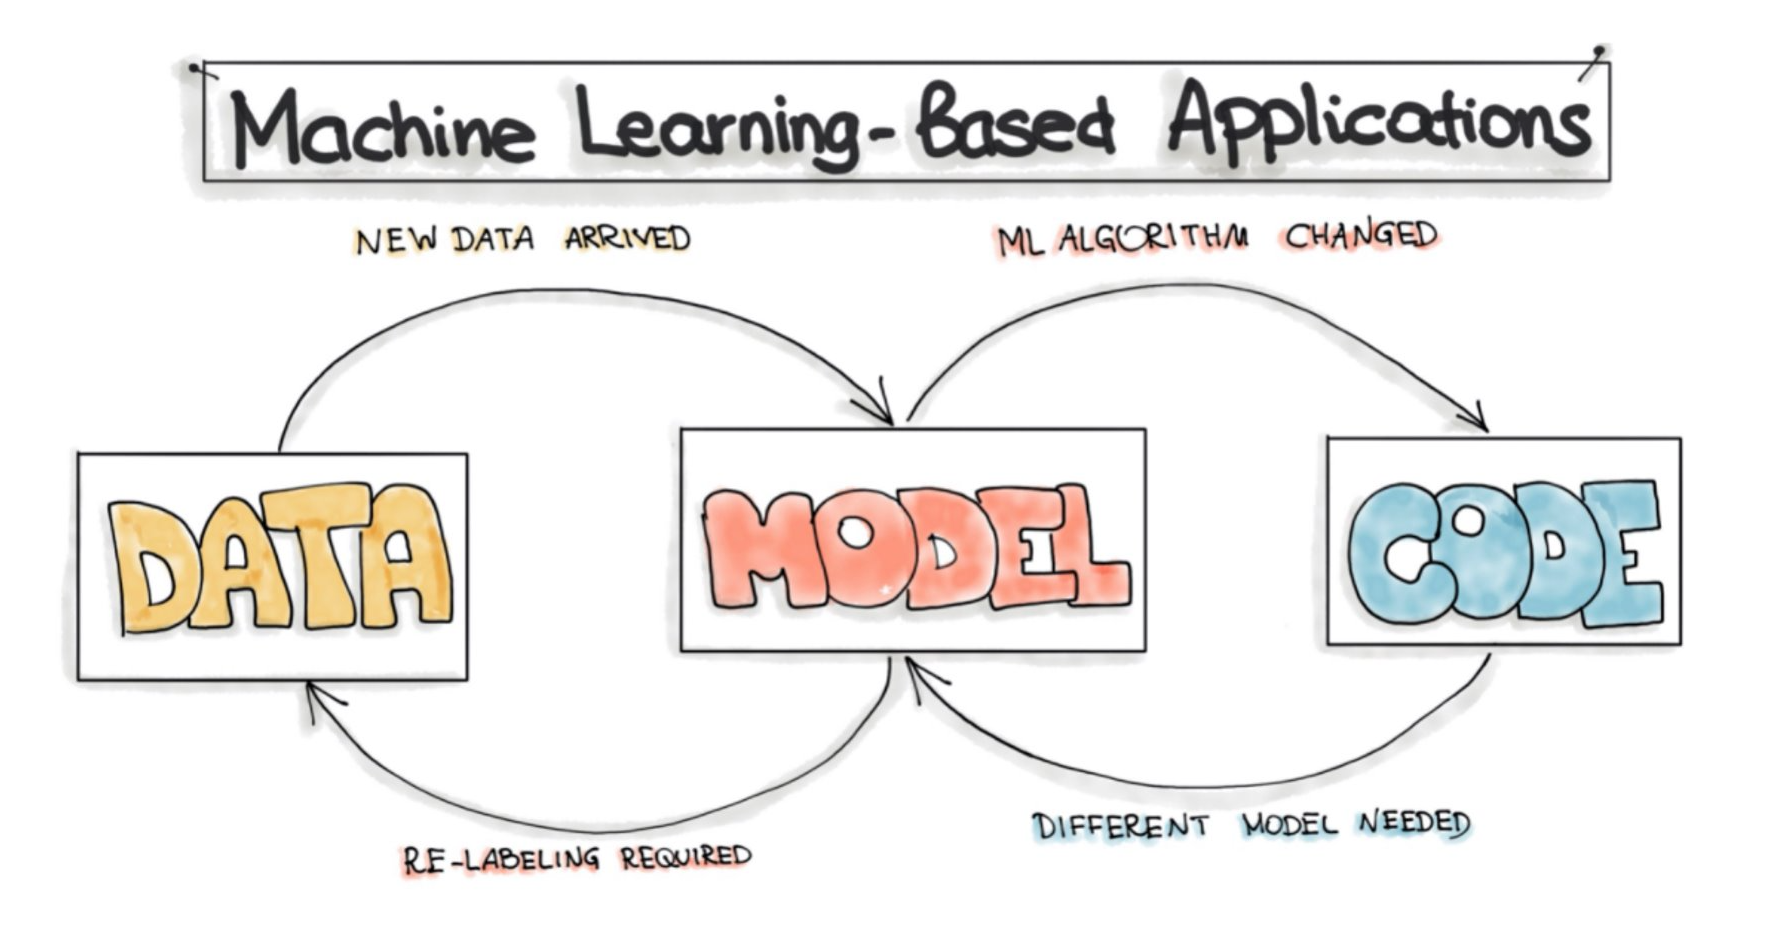 Machine Learning-Based Applications
NEW DATA ARRIVED
ML ALGORITHM CHANGED
DATA
MODEL
CODE
RE-LABELING REQUIRED
DIFFERENT MODEL NEEDED